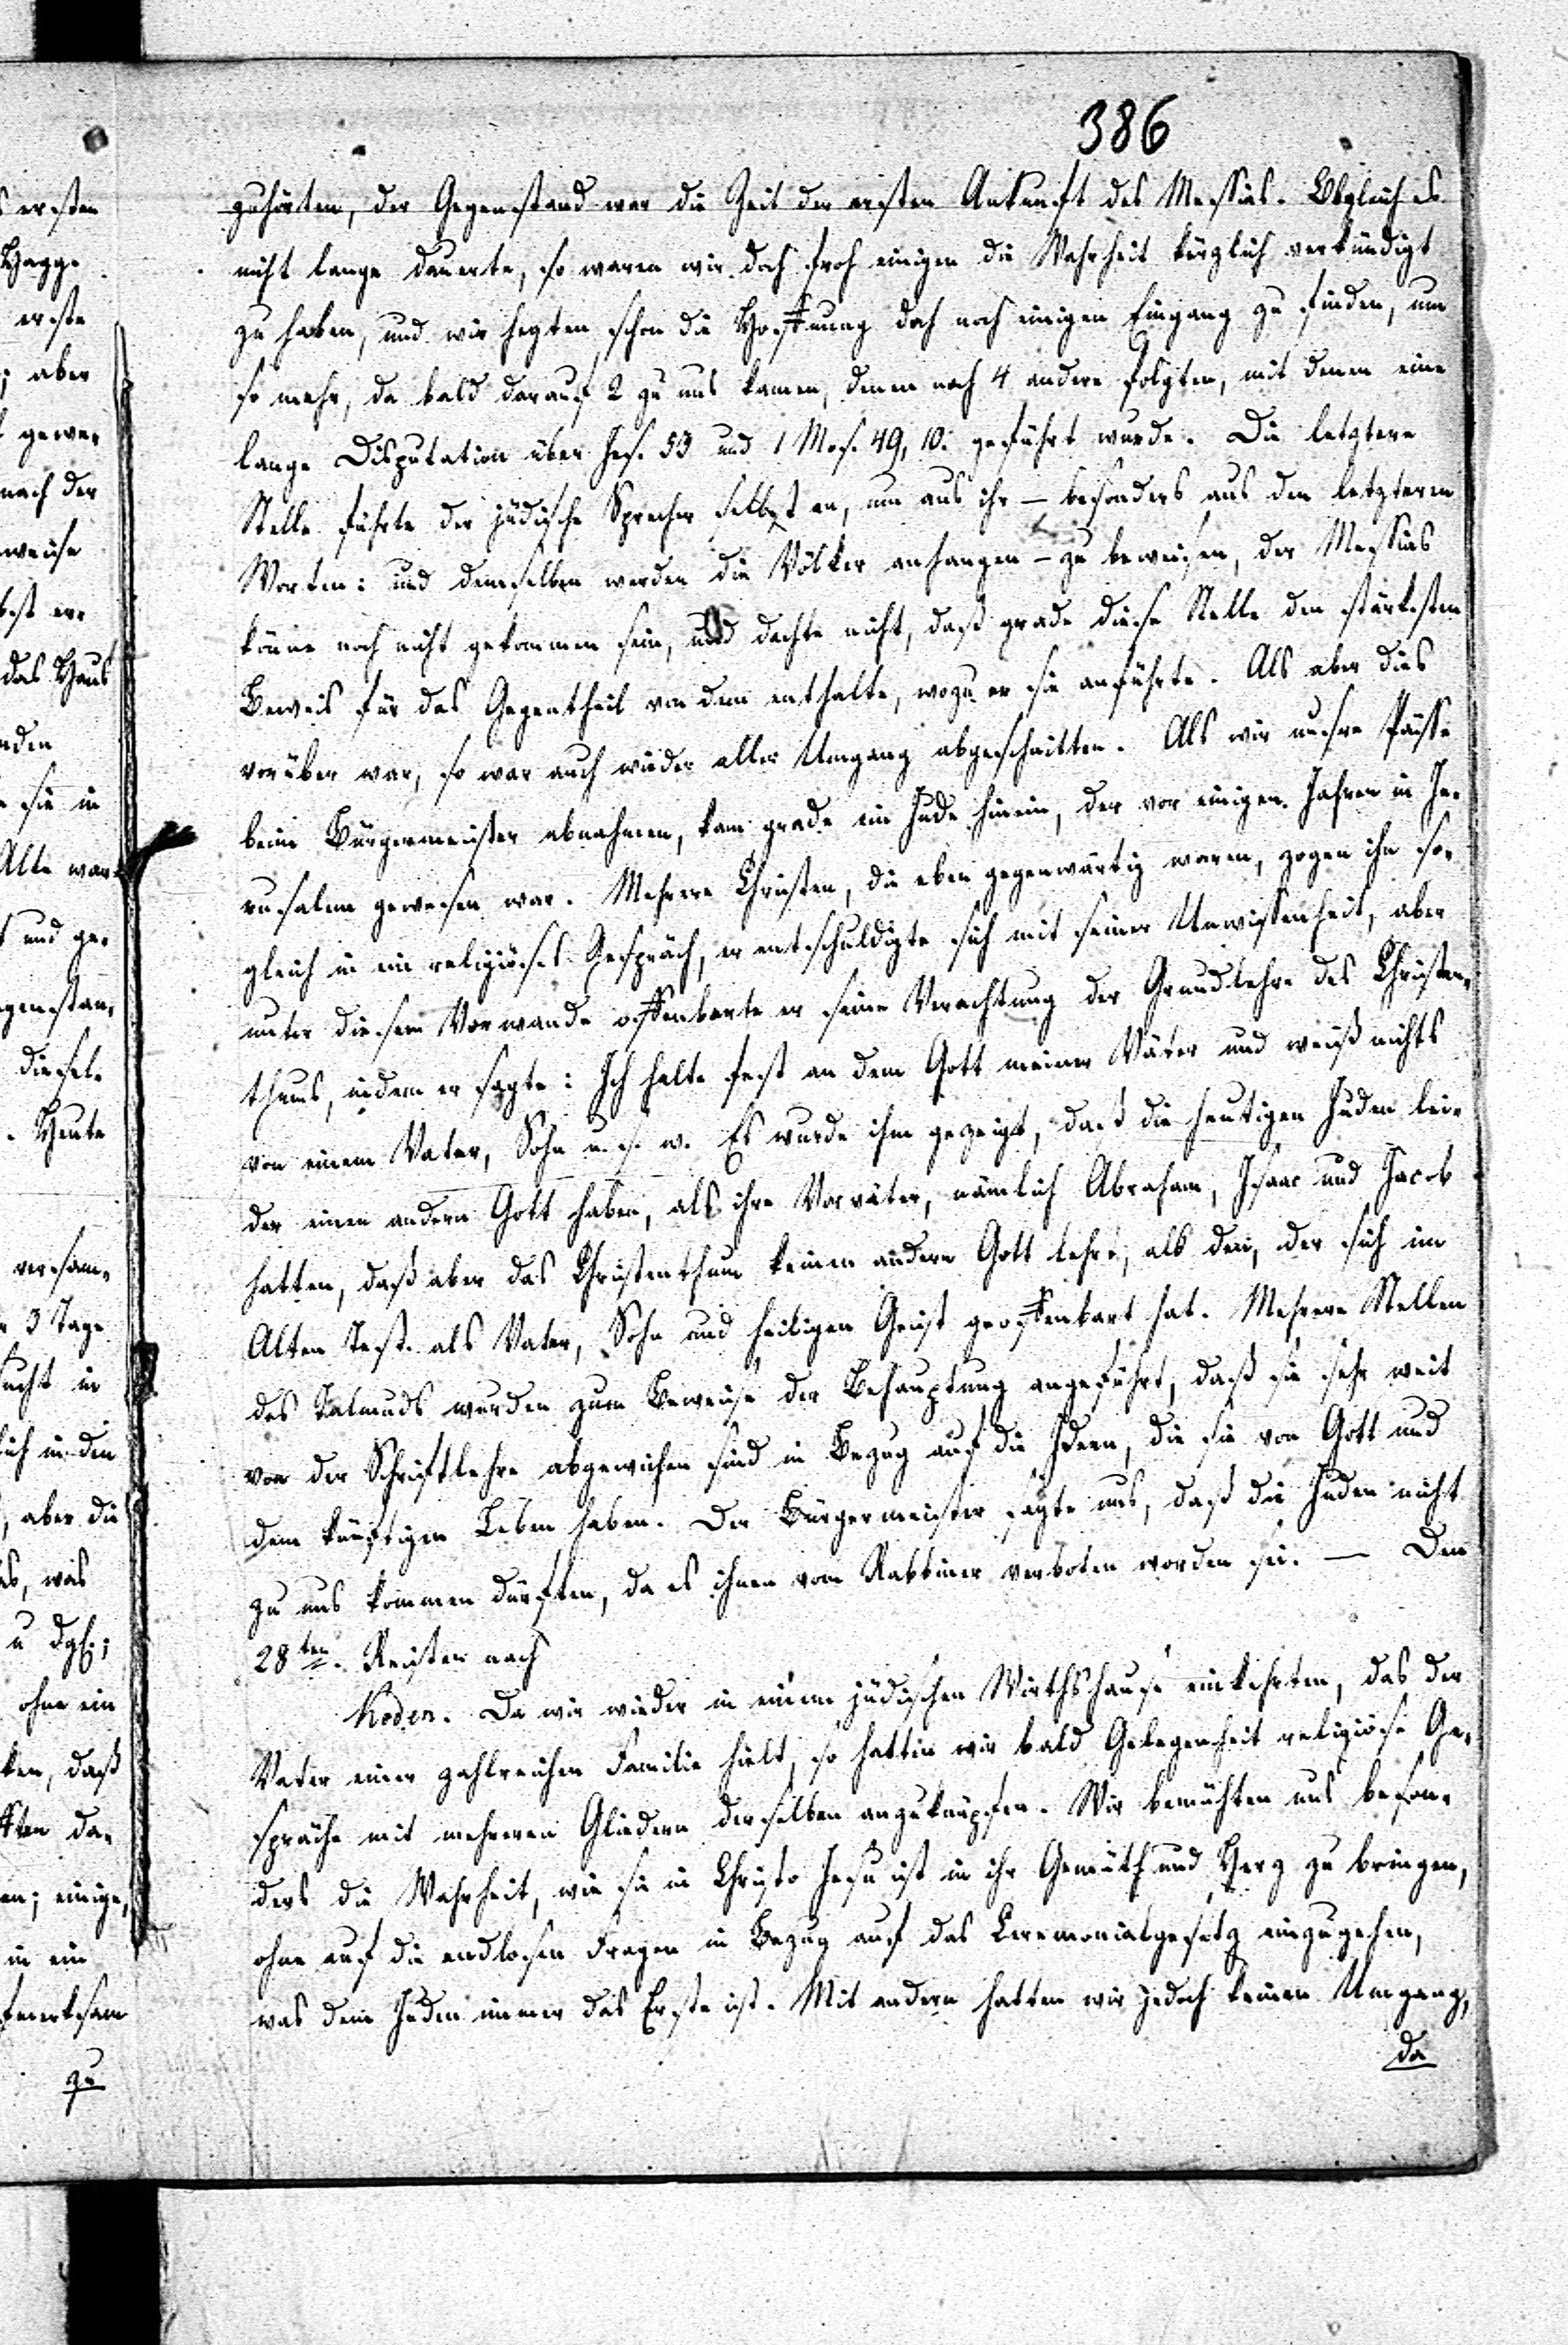 386
zuhörten, der Gegenstand war die Zeit der ersten Ankunft des Messias. Obgleich es
nicht lange dauerte, so waren wir doch froh einigen die Wahrheit kürzlich verkündigt
zu haben, und wir hegten schon die Hoffnung doch noch einigen Eingang zu finden, um
so mehr, da bald darauf 2 zu uns kamen, denen noch 4 andere folgten, mit denen eine
lange Disputation über Jes. 53 und 1 Mos. 49, 10. geführt wurde. Die letztere
Stelle führte der jüdische Sprecher selbst an, um aus ihr – besonders aus den letzteren
Worten: und demselben werden die Völker anhangen – zu beweisen, der Messias
könne noch nicht gekommen sein, und dachte nicht, daß grade diese Stelle den stärksten
Beweis für das Gegentheil von dem enthalte, wozu er sie anführte. Als aber dies
vorüber war, so war auch wieder aller Umgang abgeschnitten. Als wir unsre Pässe
beim Bürgermeister abnahmen, kam grade ein Jude hinein, der vor einigen Jahren in Je-
rusalem gewesen war. Mehrere Christen, die eben gegenwärtig waren, zogen ihn so-
gleich in ein religiöses Gespräch, er entschuldigte sich mit seiner Unwissenheit, aber
unter diesem Vorwande offenbarte er seine Verachtung der Grundlehre des Christen-
thums, indem er sagte: Ich halte fest an dem Gott meiner Väter und weiß nichts
von einem Vater, Sohn u. s. w. Es wurde ihm gezeigt, daß die heutigen Juden lei-
der einen andern Gott haben, als ihre Vorväter, nämlich Abraham, Isaac und Jacob
hatten, daß aber das Christenthum keinen andern Gott lehrt, als den, der sich im
Alten Test. als Vater, Sohn und heiligen Geist geoffenbart hat. Mehrere Stellen
des Talmuds wurden zum Beweise der Behauptung angeführt, daß sie sehr weit
von der Schriftlehre abgewichen sind in Bezug auf die Ideen, die sie von Gott und
dem künftigen Leben haben. Der Bürgermeister sagte uns, daß die Juden nicht
zu uns kommen dürften, da es ihnen vom Rabbiner verboten worden sei. – Den
28ten. Reisten nach
Koden. Da wir wieder in einem jüdischen Wirthshause einkehrten, das der
Vater einer zahlreichen Familie hielt, so hatten wir bald Gelegenheit religiöse Ge-
spräche mit mehreren Gliedern derselben anzuknüpfen. Wir bemühten uns beson-
ders die Wahrheit, wie sie in Christo Jesu ist in ihr Gemüth und Herz zu bringen,
ohne auf die endlosen Fragen in Bezug auf das Ceremonialgesetz einzugehen,
was dem Juden immer das Erste ist. Mit andern hatten wir jedoch keinen Umgang,
da